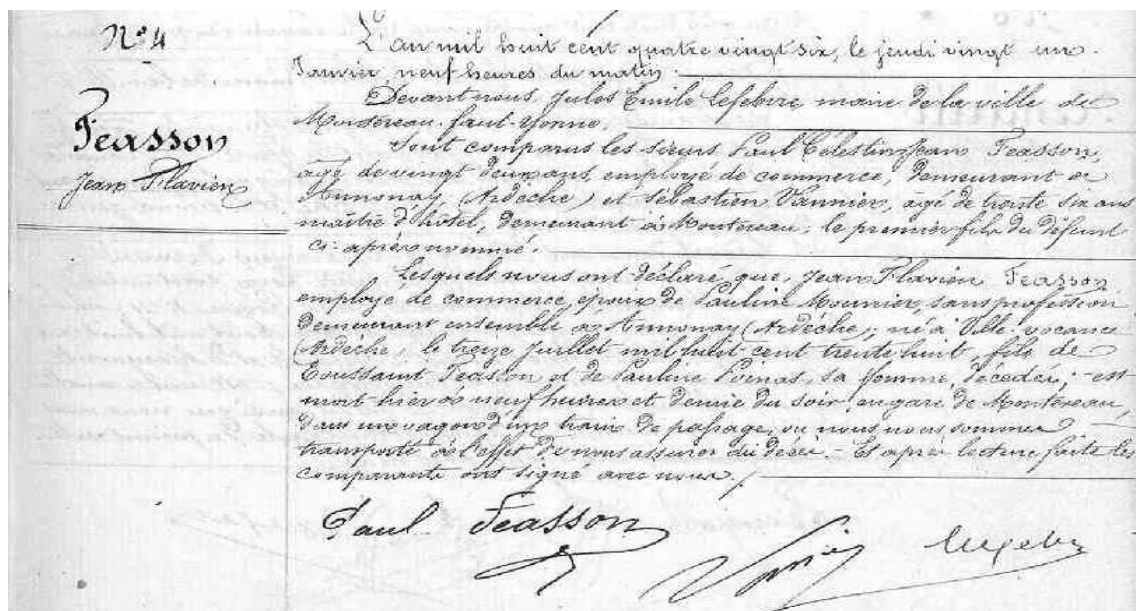 N° 4
Feasson
Jean Flavien
L'an mil huit cent quatre vingt six, le jeudi vingt un
Janvier, neuf heures du matin.
Devant nous, Jules Emile Lefebvre, maire de la ville de
Montereau-faut-Yonne,
Sont comparus les sieurs Paul Célestin Jean Feasson,
âgé de vingt deux ans, employé de commerce, demeurant à
Annonay (Ardèche) et Sébastien Vannier, âgé de trente six ans
maître d'hôtel, demeurant à Montereau, le premier fils du défunt
ci-après nommé.
Lesquels nous ont déclaré que, Jean Flavien Feasson
employé de commerce, époux de Pauline Mounier, sans profession
demeurant ensemble à Annonay (Ardèche), né à Ville-vocance
(Ardèche, le treize Juillet mil huit cent trente huit, fils de
Toussaint Feasson et de Pauline Poinas, sa femme, décédés; - est
mort hier à neuf heures et demie du soir, en gare de Montereau,
dans un wagon d'un train de passage, où nous nous sommes
transporté à l'effet de nous assurer du décès. - Et après lecture faite les
comparants ont signé avec nous./.
Paul Feasson
Lefebvre